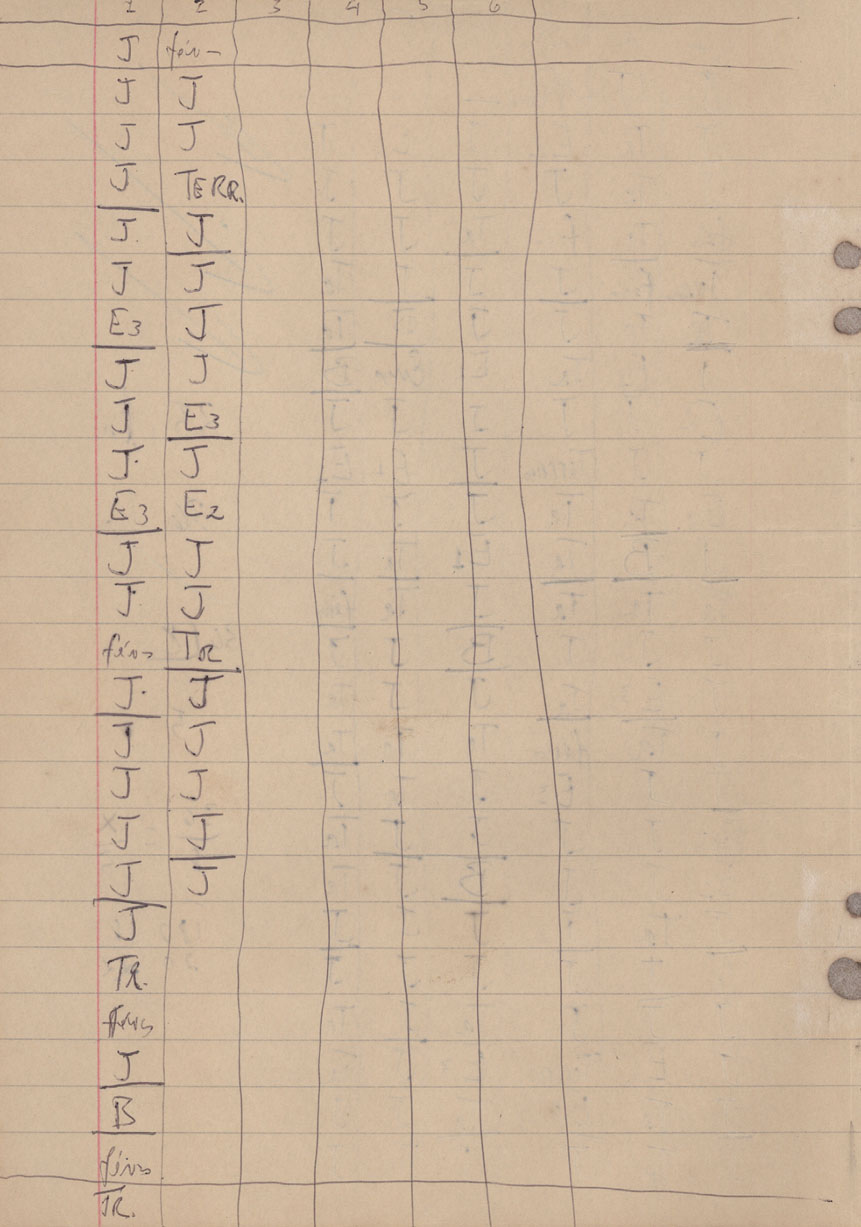 1 2 3 4 5 6
J féro
J J
J J
J TERR.
J J
J J
E3 J
J J
J E3
J. J
E3 E2
J J
J. J
féro TR
J. J
J J
J J
J J
J J
J
TR.
féro
J
B
féro
TR.